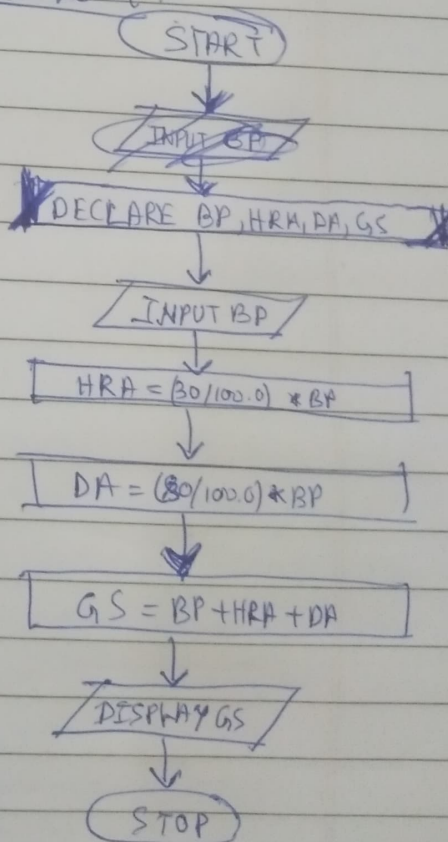 START
INPUT BP
DECLARE BP, HRA, DA, GS
INPUT BP
HRA = (30/100.0) * BP
DA = (80/100.0) * BP
GS = BP + HRA + DA
DISPLAY GS
STOP